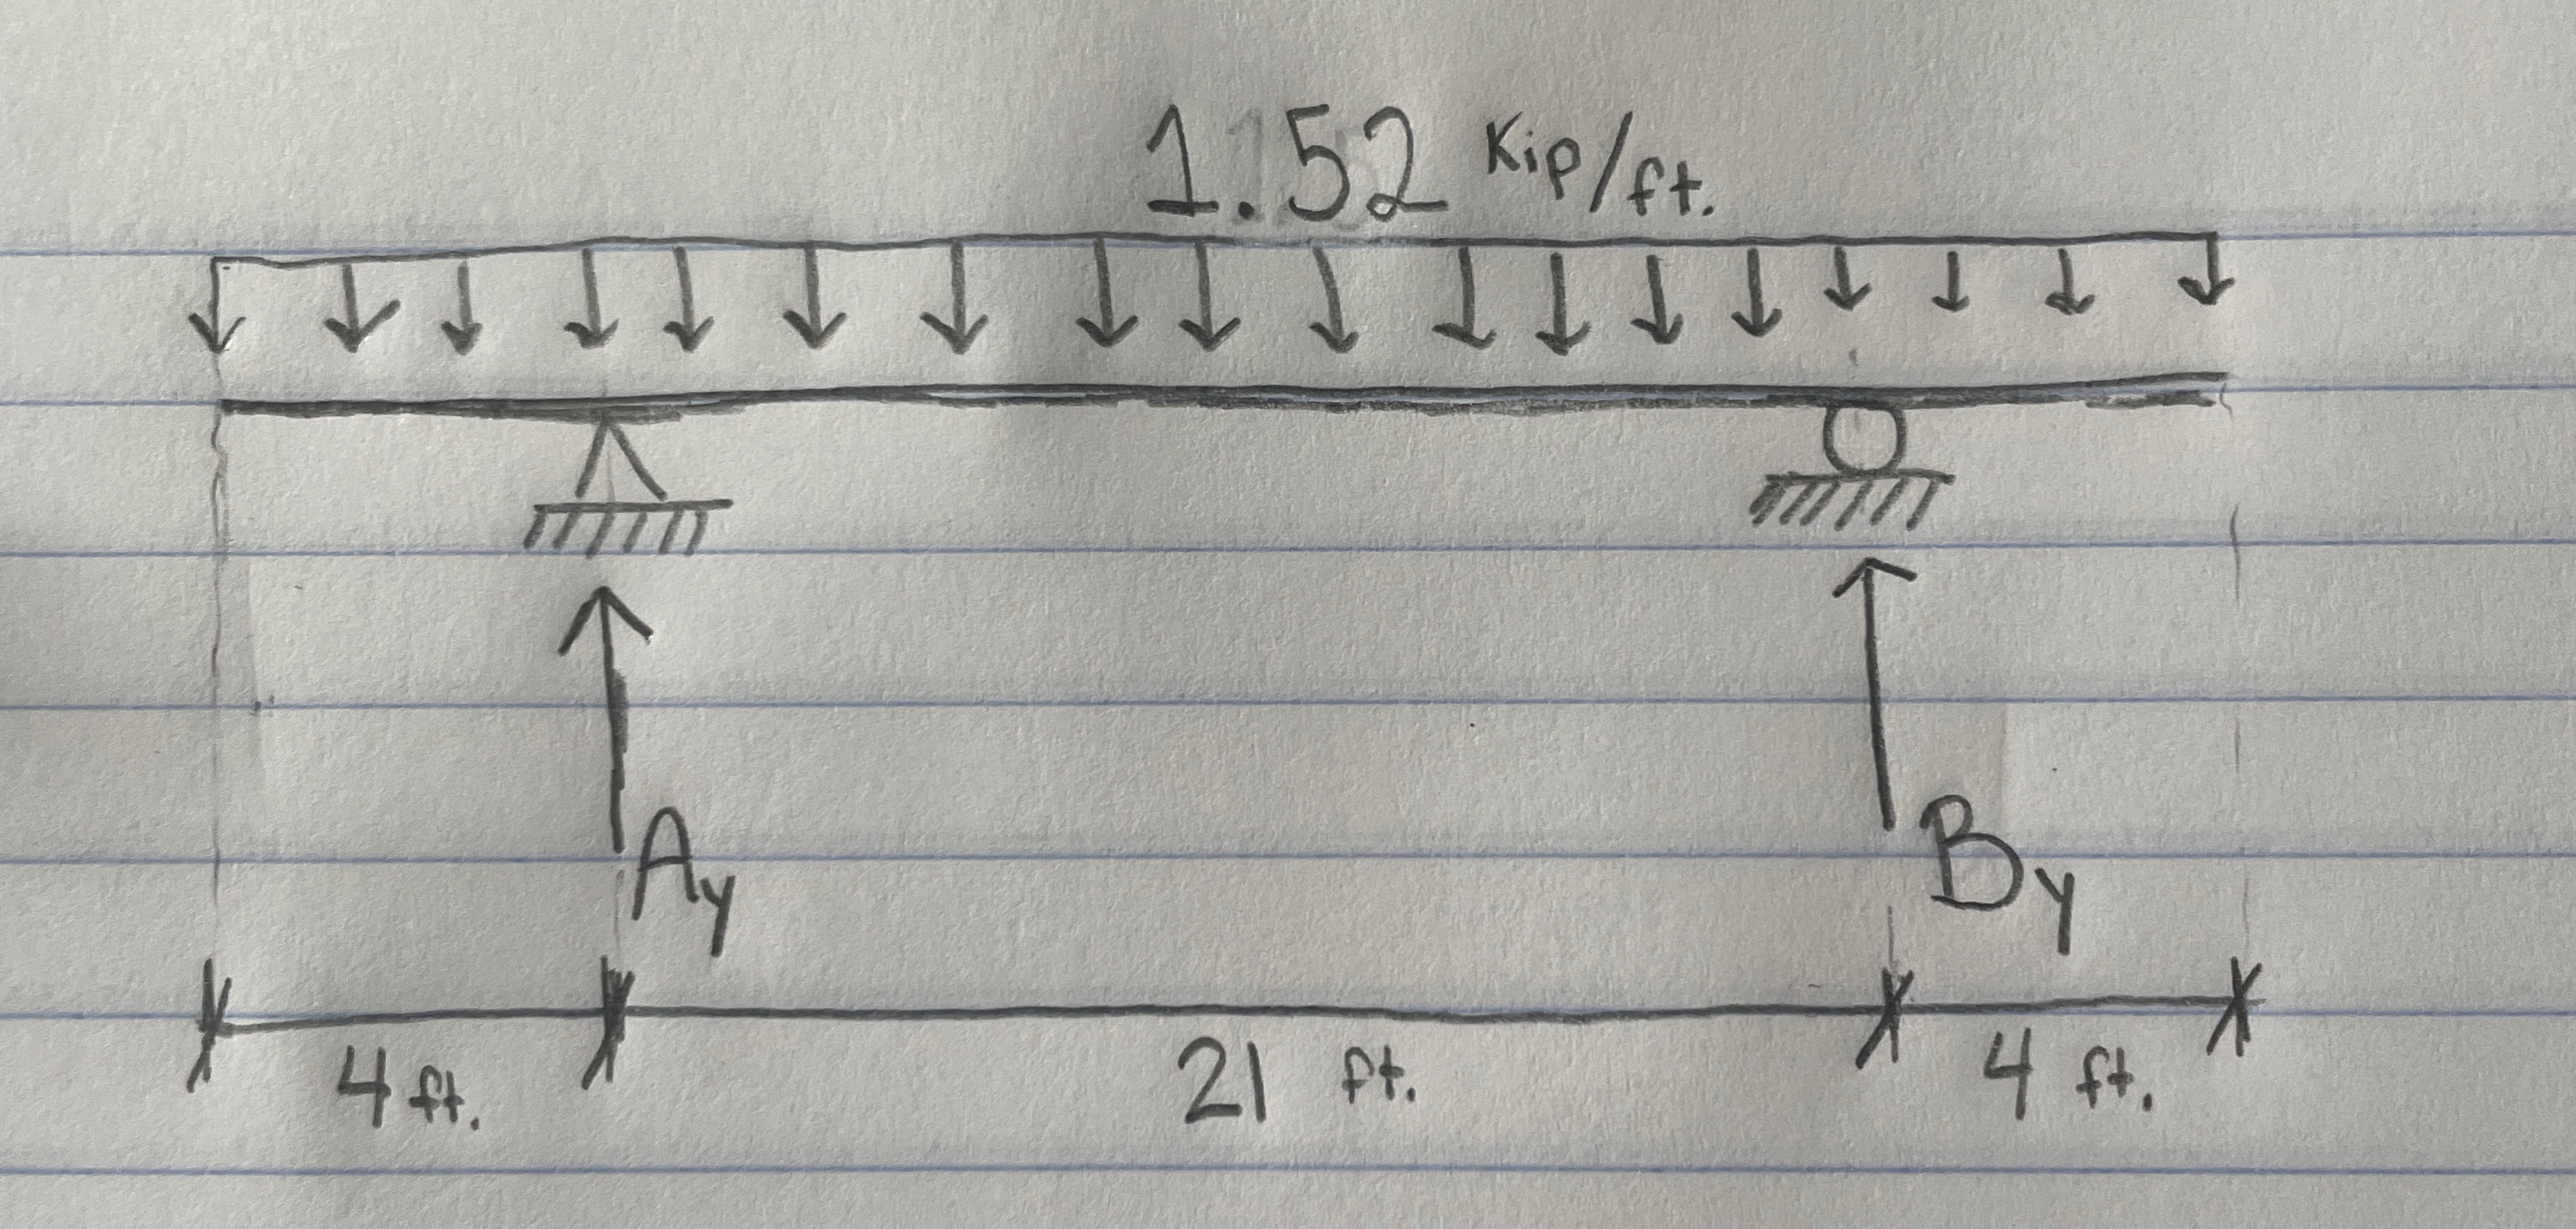 1.52 Kip/ft.
Ay
By
4 ft.
21 ft.
4 ft.